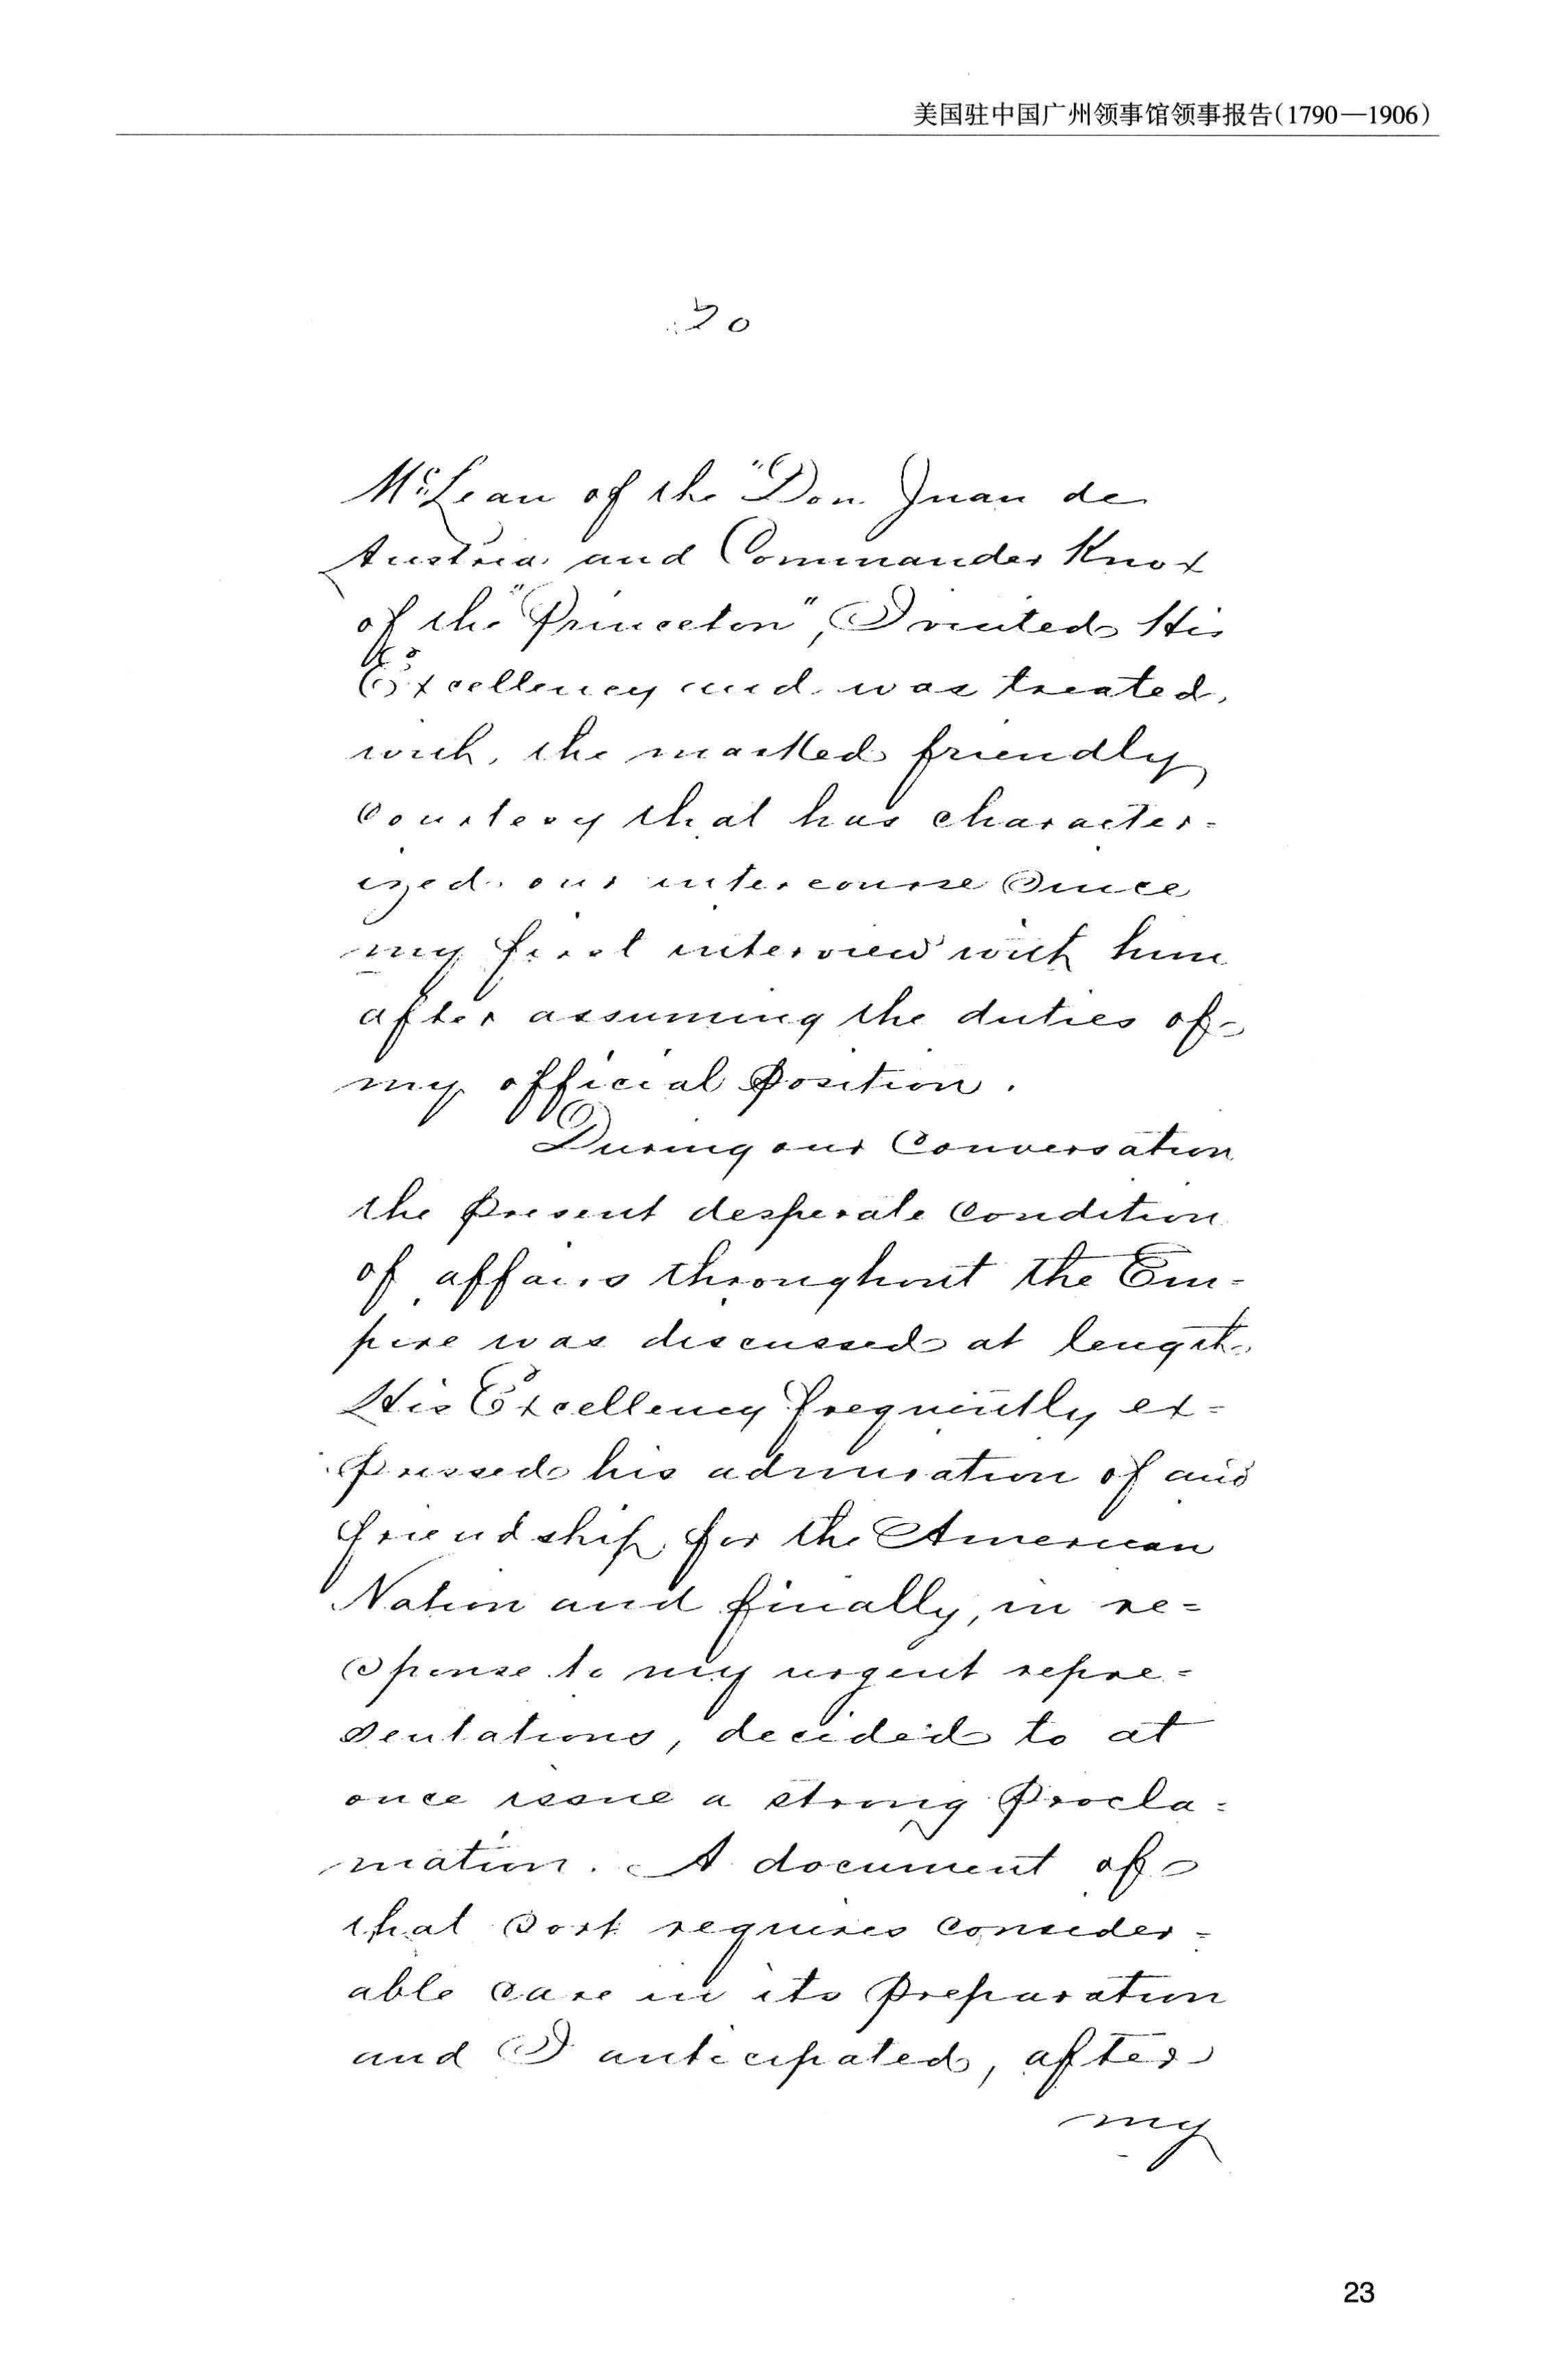 美国驻中国广州领事馆领事报告(1790—1906)
20
McLean of the "Don Juan de
Austria and Commander Knox
of the "Princeton", I visited His
Excellency and was treated
with the marked friendly
courtesy that has character-
ized our intercourse since
my first interview with him
after assuming the duties of
my official position.
During our conversation
the present desperate condition
of affairs throughout the Em-
pire was discussed at length.
His Excellency frequently ex-
pressed his admiration of and
friendship for the American
Nation and finally, in re-
sponse to my urgent repre-
sentations, decided to at
once issue a strong Procla-
mation. A document of
that sort requires consider-
able care in its preparation
and I anticipated, after
my
23